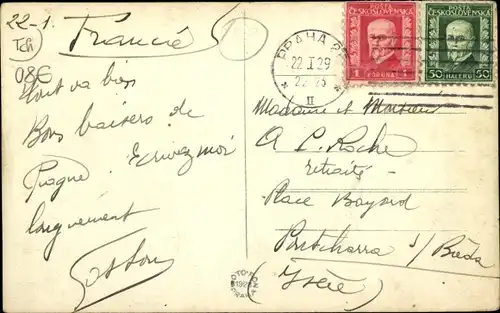 22-1.
Tch
08€
France
Tout va bien
Bons baisers de
Prague. Ecrivez moi
longuement
Gaston
PRAHA
22.I.29
II
POSTA
ČESKOSLOVENSKÁ
1 KORUNA 1
POSTA
ČESKOSLOVENSKÁ
50 HALÉŘŮ 50
Madame et Monsieur
A P. Roche
retraités
Place Bayard
Pontcharra s/ Bréda
(Isère)